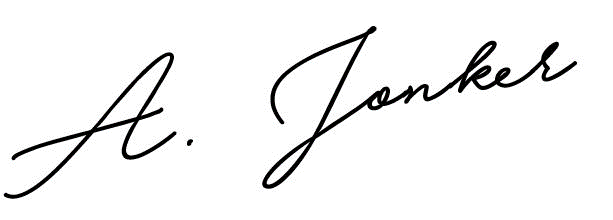 A. Jonker